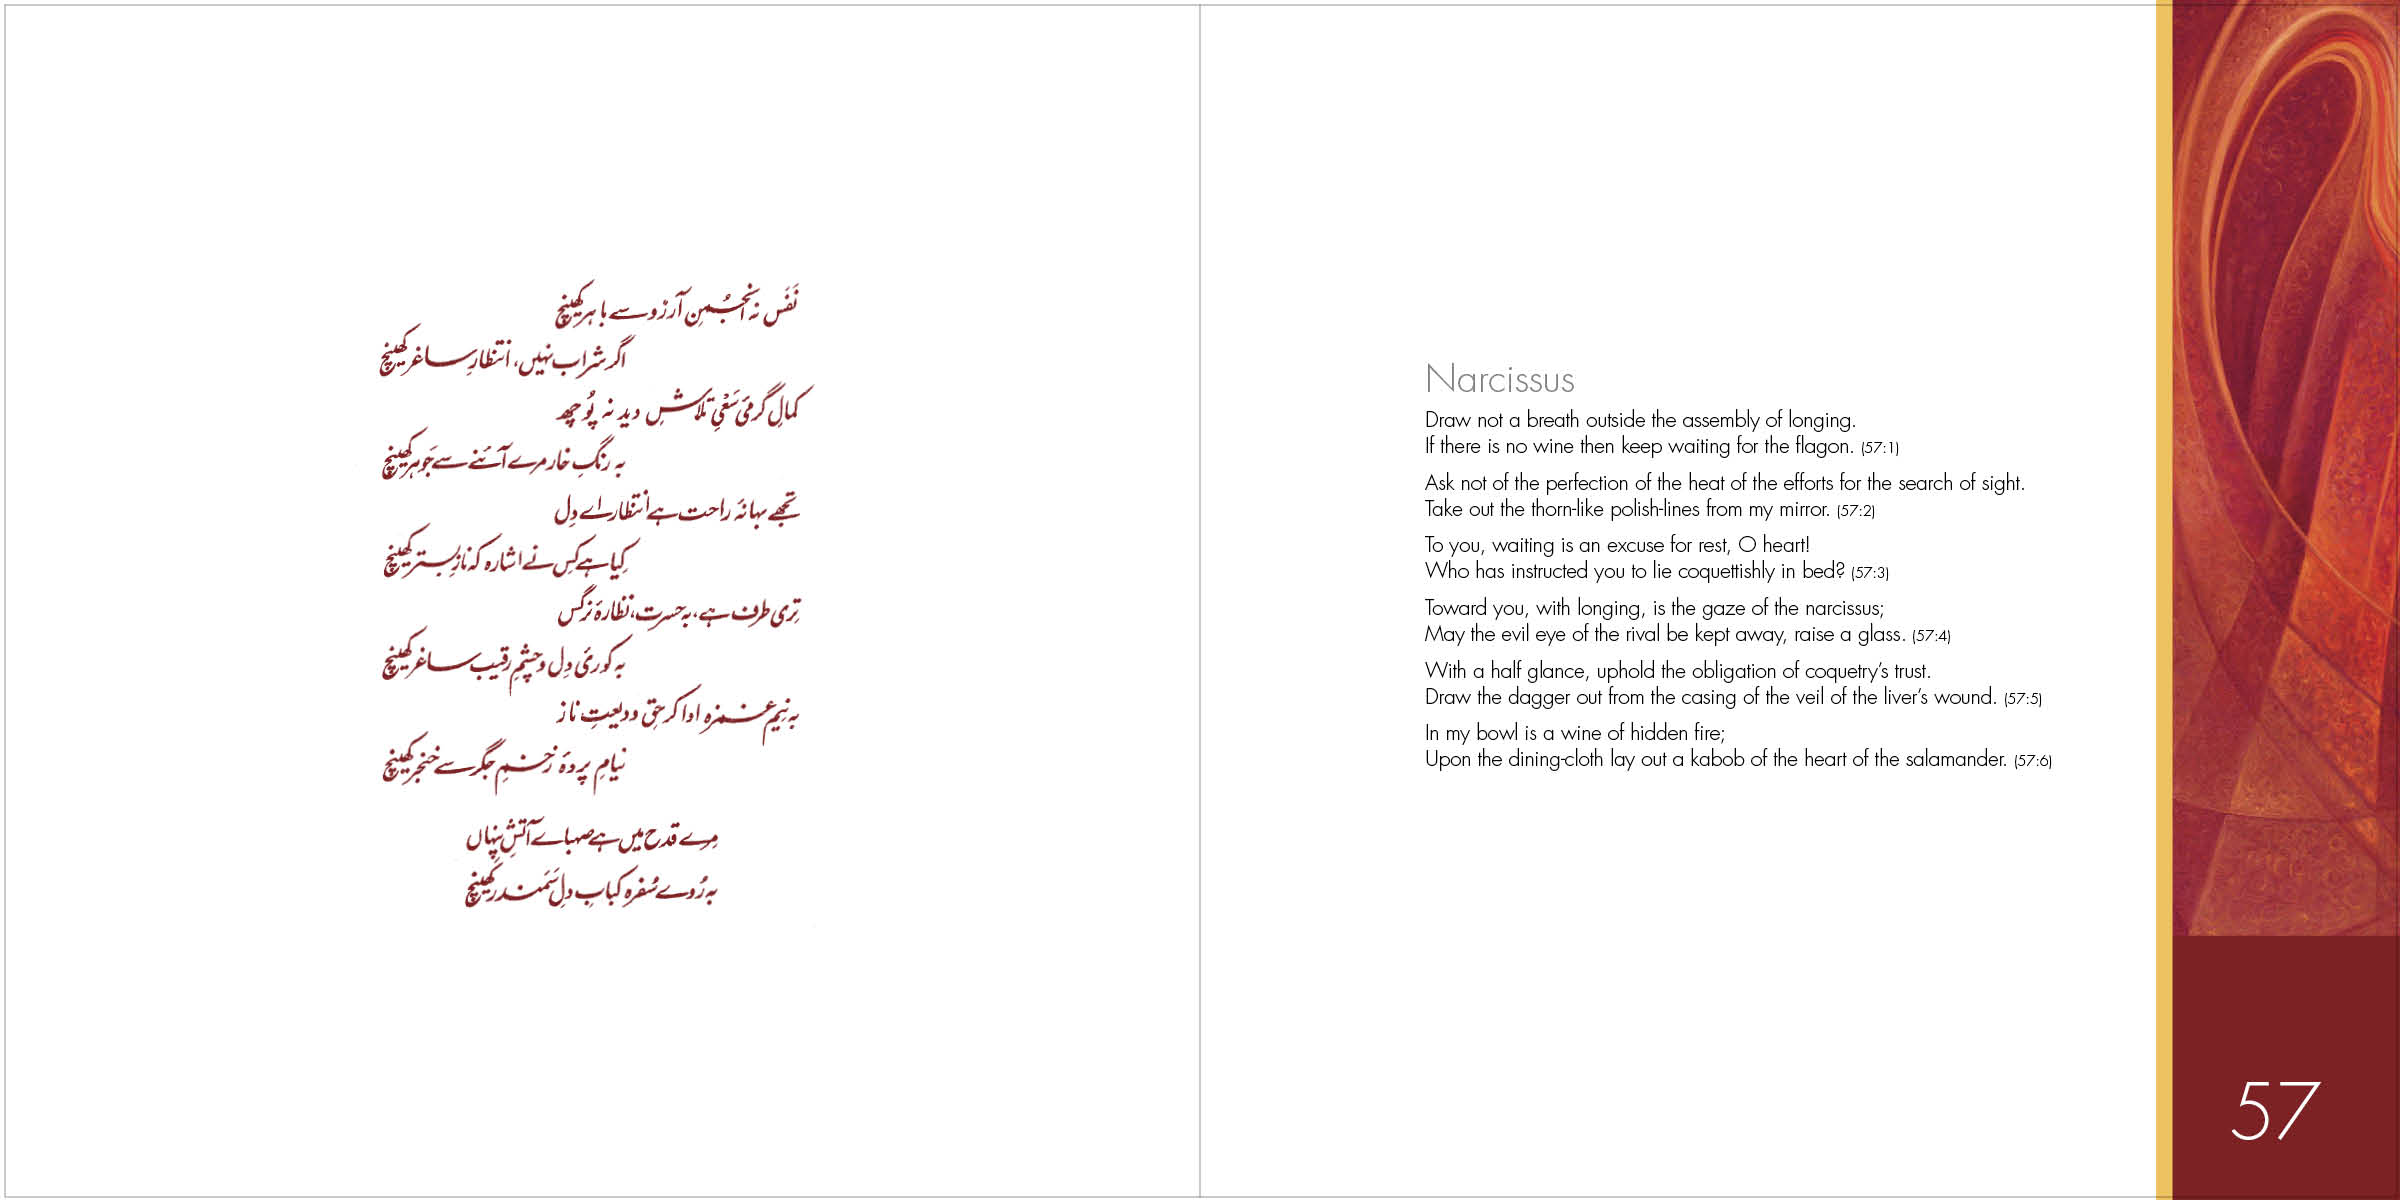 نَفَس نہ انجُمنِ آرزو سے باہر کھینچ
اگر شراب نہیں، انتظارِ ساغر کھینچ
کمالِ گرمیٔ سَعْیِ تلاشِ دید نہ پُوچھ
بہ رنگِ خار مرے آئنے سے جَوہر کھینچ
تجھے بہانۂ راحت ہے انتظار اے دِل
کِیا ہے کِس نے اشارہ کہ نازِ بستر کھینچ
تِری طرف ہے، بہ حسرت، نظارۂ نرگس
بہ کوریٔ دِل و چشمِ رقیب ساغر کھینچ
بہ نِیم غمزہ ادا کر حقِ ودیعتِ ناز
نیامِ پردۂ زخمِ جگر سے خنجر کھینچ
مِرے قدح میں ہے صہباے آتشِ پنہاں
بہ رُوے سُفرہ کبابِ دلِ سَمَندر کھینچ
Narcissus
Draw not a breath outside the assembly of longing.
If there is no wine then keep waiting for the flagon. (57:1)
Ask not of the perfection of the heat of the efforts for the search of sight.
Take out the thorn-like polish-lines from my mirror. (57:2)
To you, waiting is an excuse for rest, O heart!
Who has instructed you to lie coquettishly in bed? (57:3)
Toward you, with longing, is the gaze of the narcissus;
May the evil eye of the rival be kept away, raise a glass. (57:4)
With a half glance, uphold the obligation of coquetry’s trust.
Draw the dagger out from the casing of the veil of the liver’s wound. (57:5)
In my bowl is a wine of hidden fire;
Upon the dining-cloth lay out a kabob of the heart of the salamander. (57:6)
57